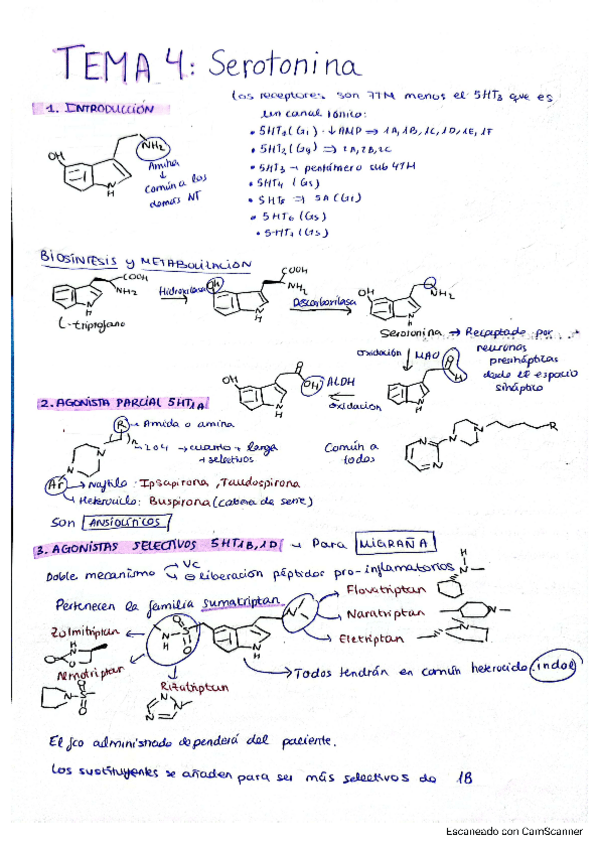 TEMA 4: Serotonina
1. INTRODUCCIÓN
Los receptores son 7TM menos el 5HT3 que es
un canal iónico:
• 5HT1 (Gi) ↓ AMP ⇒ 1A, 1B, 1C, 1D, 1E, 1F
• 5HT2 (Gq) ⇒ 2A, 2B, 2C
• 5HT3 → pentámero sub 4TM
• 5HT4 (Gs)
• 5HT5 ⇒ 5A (Gi)
• 5HT6 (Gs)
• 5HT7 (Gs)
OH
NH2
N
H
Amina
↓
Común a los
demás NT
BIOSÍNTESIS y METABOLIZACIÓN
COOH
NH2
N
H
L-triptófano
Hidroxilasa
OH
COOH
NH2
N
H
Descarboxilasa
OH
NH2
N
H
Serotonina → Recaptado por
neuronas
presinápticas
desde el espacio
sináptico
oxidación ↓ MAO
O
H
N
H
ALDH
oxidación
OH
O
OH
N
H
2. AGONISTA PARCIAL 5HT1A
R → Amida o amina
n = 2 o 4 → cuanto + larga
+ selectivos
N
N
Ar → Naftilo: Ipsapirona, Tandospirona
↳ Heterociclo: Buspirona (cabeza de serie)
Común a
todos
N
N
N
N
R
Son ANSIOLÍTICOS
3. AGONISTAS SELECTIVOS 5HT1B, 1D → Para MIGRAÑA
Doble mecanismo → VC
→ ⊖ liberación péptidos pro-inflamatorios
Pertenecen la familia sumatriptan
Zolmitriptan
Almotriptan
Rizatriptan
Flovatriptan
Naratriptan
Eletriptan
→ Todos tendrán en común heterociclo indol
El fco administrado dependerá del paciente.
Los sustituyentes se añaden para ser más selectivos de 1B
Escaneado con CamScanner